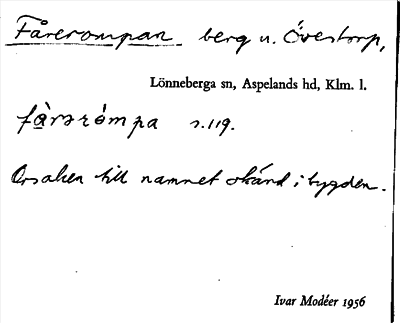 Fårerompan berg u. Övestorp,
Lönneberga sn, Aspelands hd, Klm. l.
fàrərómpa s.119.
Orsaken till namnet okänd i bygden.
Ivar Modéer 1956